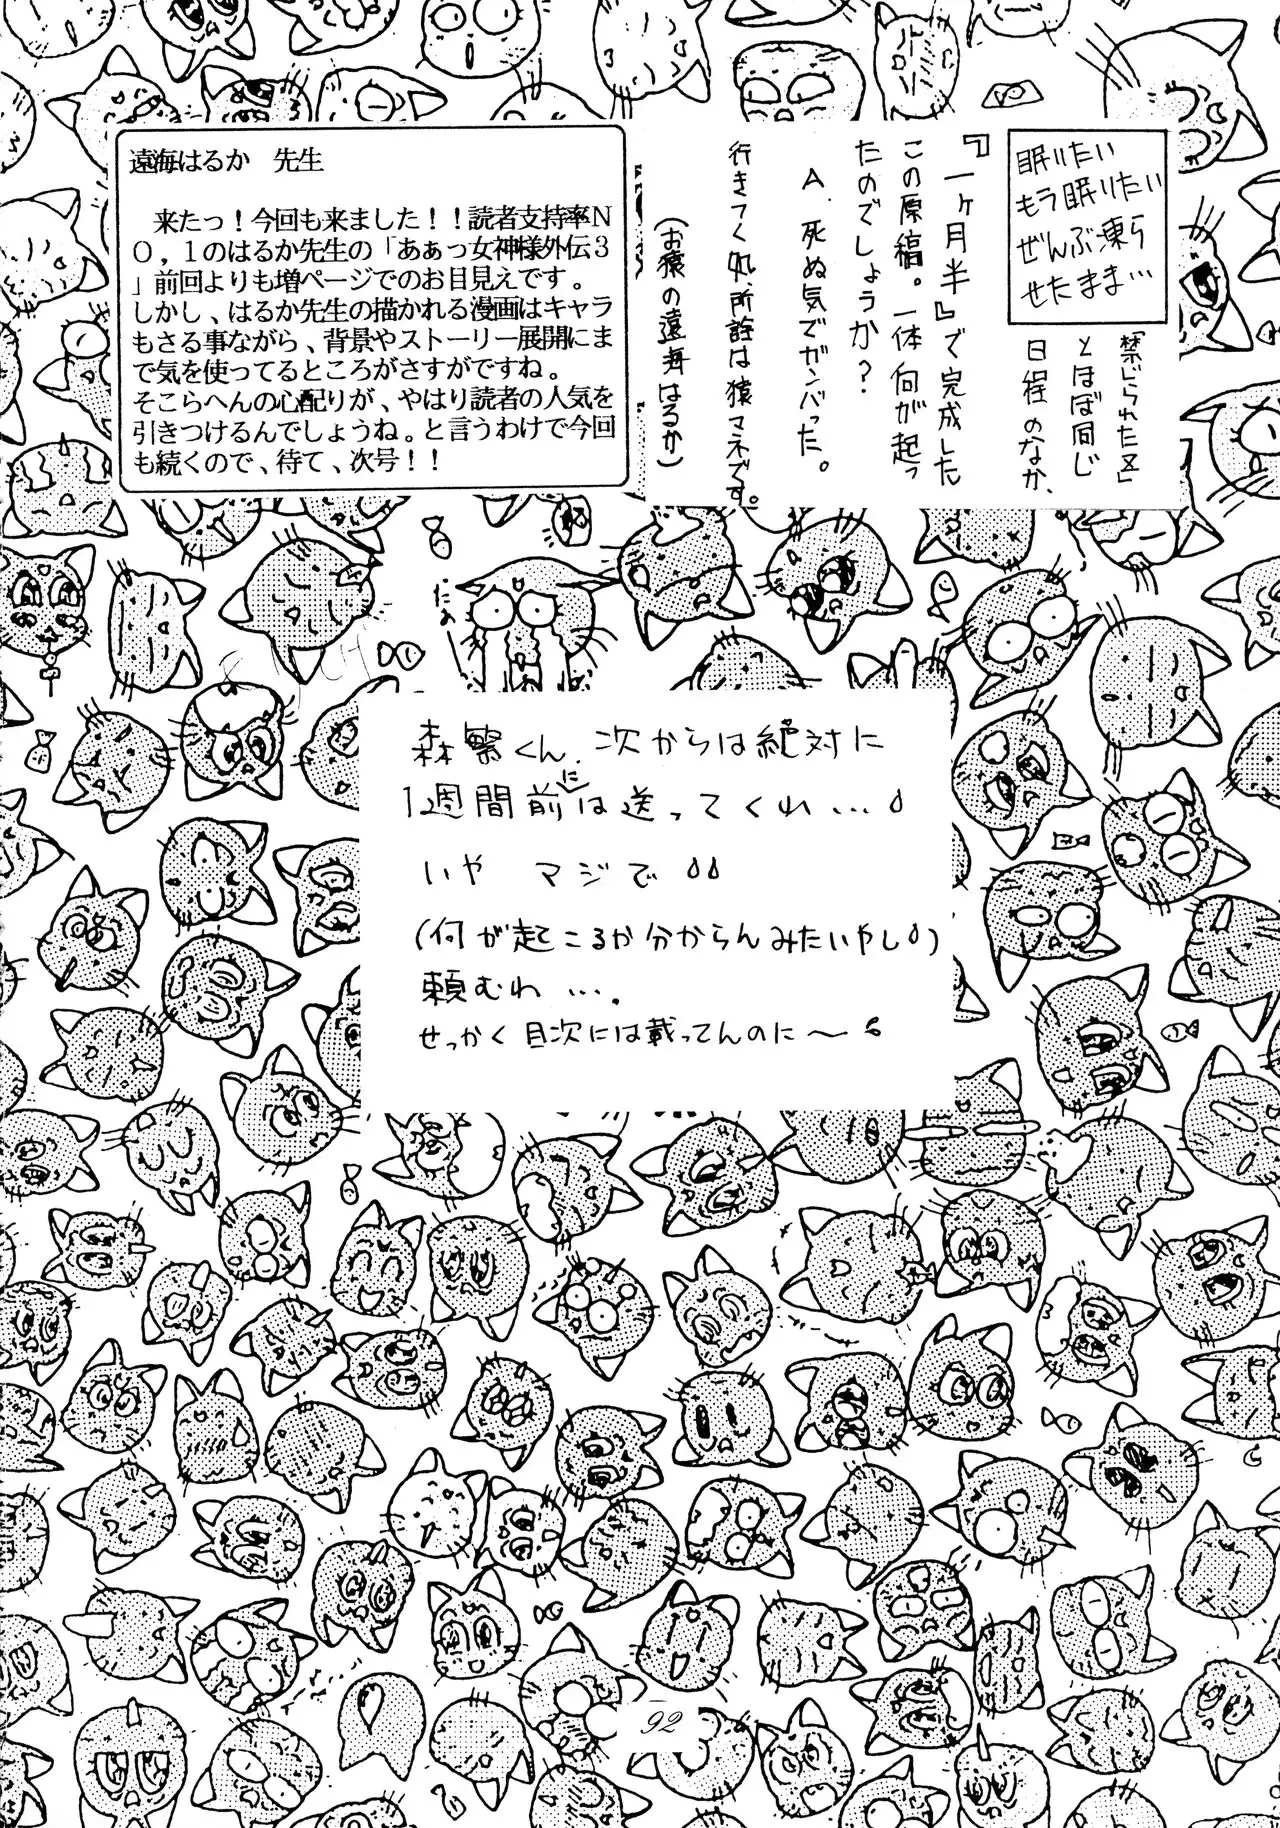 眠りたい
もう眠りたい
ぜんぶ凍ら
せたまま…
「禁じられたZ」
とほぼ同じ
日程のなか、
『一ヶ月半』で完成した
この原稿。一体何が起っ
たのでしょうか?
A.死ぬ気でガンバった。
行きつく処、所詮は猿マネです。
(お猿の遠海はるか)
遠海はるか 先生
来たっ!今回も来ました!!読者支持率N
O,1のはるか先生の「あぁっ女神様外伝3
」前回よりも増ページでのお目見えです。
しかし、はるか先生の描かれる漫画はキャラ
もさる事ながら、背景やストーリー展開にま
で気を使ってるところがさすがですね。
そこらへんの心配りが、やはり読者の人気を
引きつけるんでしょうね。と言うわけで今回
も続くので、待て、次号!!
森繁くん、次からは絶対に
1週間前には送ってくれ…
いや マジで
(何が起こるか分からんみたいやし)
頼むわ…。
せっかく目次には載ってんのに〜
92